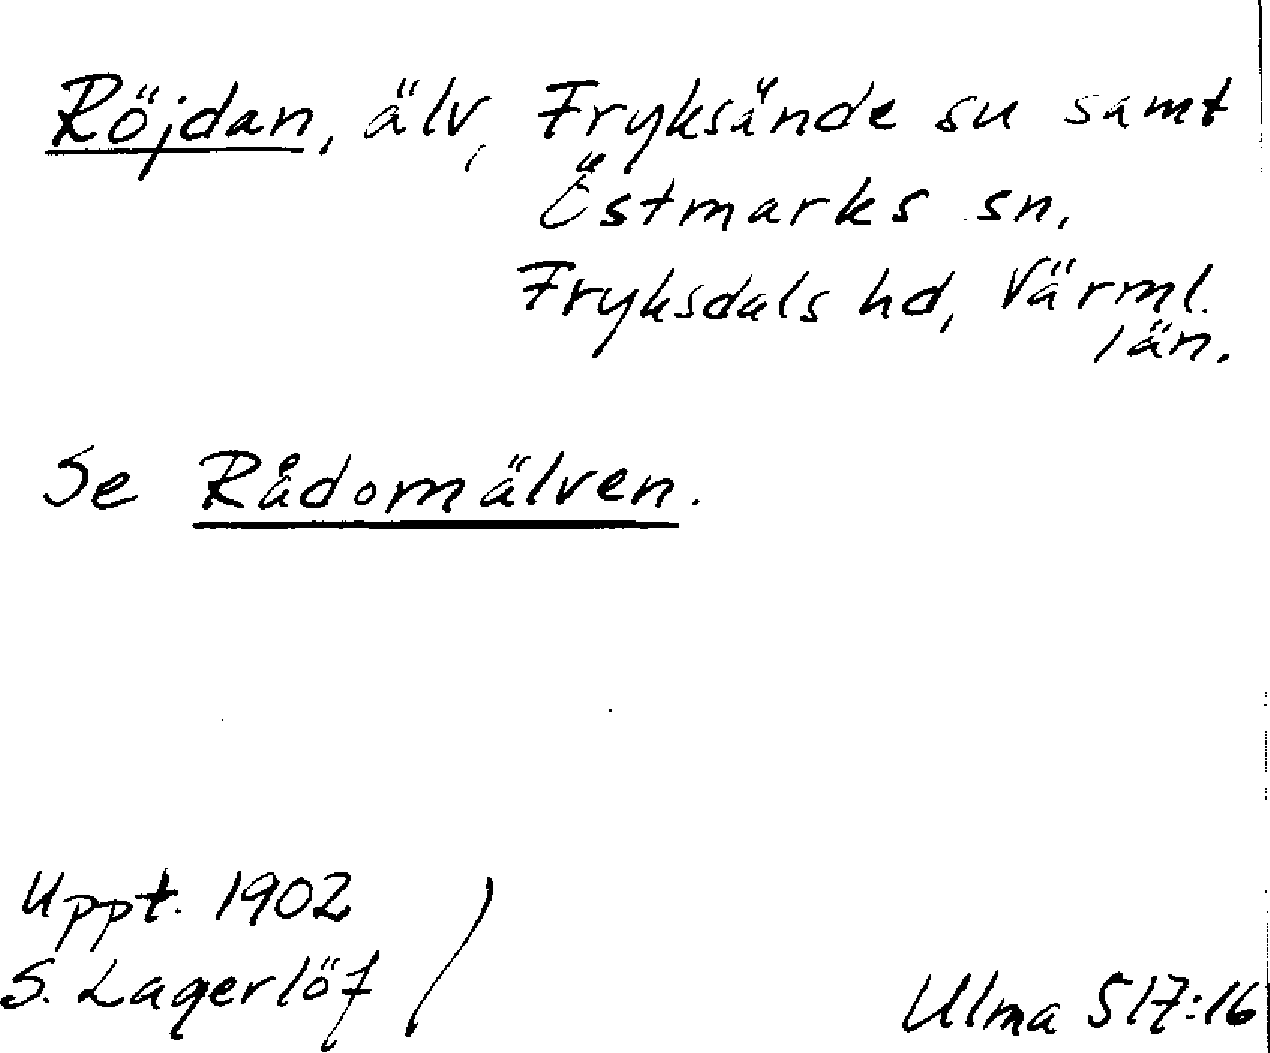 Röjdan, älv, Fryksände sn samt
Östmarks sn,
Fryksdals hd, Värml.
län.
Se Rådomälven.
Uppt. 1902
S. Lagerlöf
Ulma 517:16